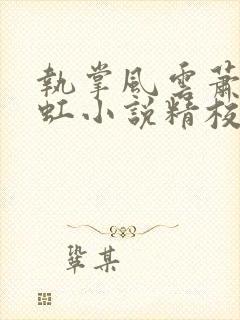 執掌風雲蕭
虹小說精校
鞏某